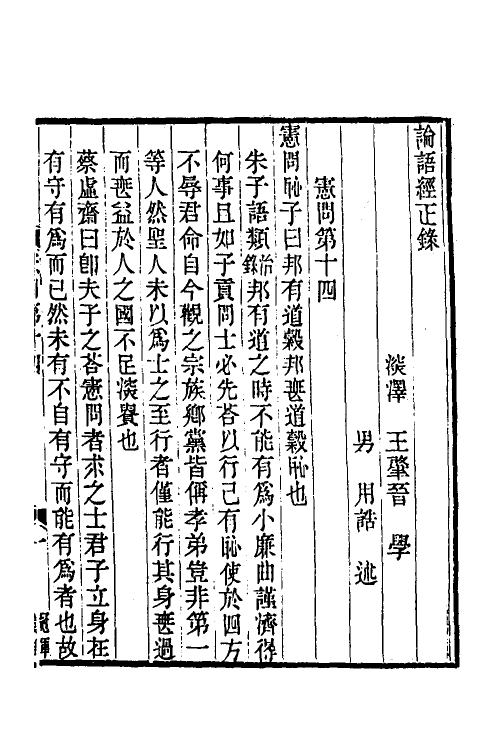 論語經正錄
淡澤　王肇晉　學
男　用誥　述
憲問第十四
憲問恥子曰邦有道穀邦無道穀恥也
朱子語類治錄邦有道之時不能有爲小廉曲謹濟得
何事且如子貢問士必先荅以行己有恥使於四方
不辱君命自今觀之宗族鄉黨皆偁孝弟豈非第一
等人然聖人未以爲士之至行者僅能行其身無過
而無益於人之國不足淡貴也
蔡虛齋曰卽夫子之荅憲問者求之士君子立身在
有守有爲而已然未有不自有守而能有爲者也故